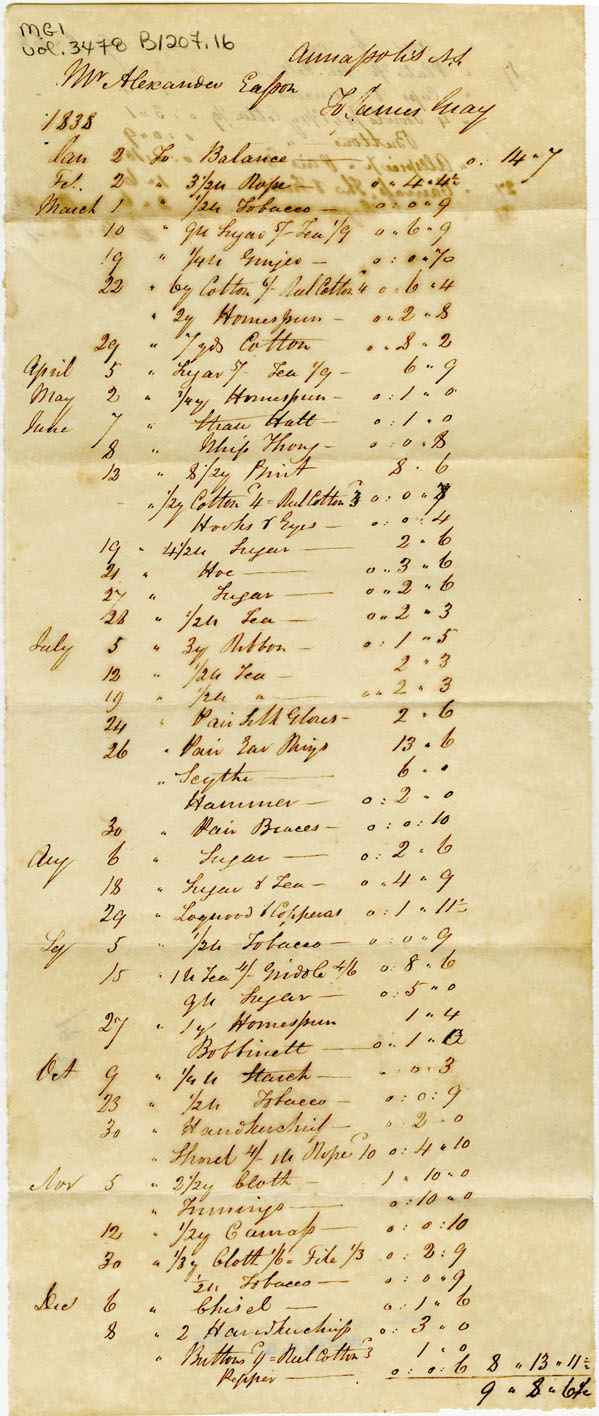 MG1
vol. 3478 B1207.16
Annapolis N.S.
Mr Alexander Easson
To James Gray
1838
Jan 2 To Balance — 0 : 14 " 7
Feb. 2 " 3 1/2 lb Rope — 0 " 4 " 4 1/2
March 1 " 1/2 lb Tobacco — 0 : 0 " 9
10 " 9 lb Sugar 5/- Tea 1/9 0 " 6 " 9
19 " 1/4 lb Ginger — 0 : 0 " 7 1/2
22 " 6y Cotton 6/- Reel Cotton 4 0 " 6 " 4
" 2y Homespun — 0 " 2 " 8
29 " 7 yds Cotton 0 " 8 " 2
April 5 " Sugar 5/- Tea 1/9 — 6 " 9
May 2 " 3/4 y Homespun — 0 : 1 " 0
June 7 " Straw Hatt — 0 : 1 " 0
8 " Whip Thong — 0 : 0 " 8
12 " 8 1/2 y Print 8 " 6
" 1/2 y Cotton 4 = Reel Cotton 3 0 : 0 " 7
Hooks & Eyes — 0 : 0 : 4
19 " 4 1/2 lb Sugar — 2 " 6
21 " Hoe — 0 " 3 " 6
27 " Sugar — 0 " 2 " 6
28 " 1/2 lb Tea — 0 " 2 " 3
July 5 " 3y Ribbon — 0 : 1 " 5
12 " 1/2 lb Tea — 2 " 3
19 " 1/2 lb " — " " 2 " 3
24 " Pair Silk Gloves — 2 " 6
26 " Pair Ear Rings 13 " 6
" Scythe — 6 " "
Hammer — 0 : 2 " 0
30 " Pair Braces — 0 : 0 : 10
Aug 6 " Sugar — 0 : 2 " 6
18 " Sugar & Tea — 0 " 4 " 9
29 " Logwood & Copperas 0 : 1 " 11 1/2
Sep 5 " 1/2 lb Tobacco — 0 : 0 " 9
15 " 1 lb Tea 4/- Griddle 4/6 0 : 8 " 6
9 lb Sugar — 0 : 5 " 0
27 " 1 y Homespun 1 " 4
Bobbinett — 0 " 1 "
Oct 9 " 1/4 lb Starch — " " 0 " 3
23 " 1/2 lb Tobacco — 0 : 0 : 9
30 " Handkerchief — 0 : 2 " 0
" Shovel 4/ 1 lb Rope 10 0 : 4 " 10
Nov 5 " 2 1/2 y Cloth — 1 " 10 " 0
" Trimings — 0 : 10 " 0
12 " 1/2 y Canvass — 0 : 0 : 10
30 " 1/3 y Cloth 1/6 = File 1/3 0 : 2 : 9
1/2 lb Tobacco — 0 : 0 " 9
Dec 6 " Chisel — 0 : 1 " 6
8 " 2 Handkerchiefs 0 : 3 " 0
" Buttons 9 = Reel Cotton 3 1 " 0
Pepper — 0 : 0 : 6 8 " 13 " 11 1/2
9 " 8 " 6 1/2